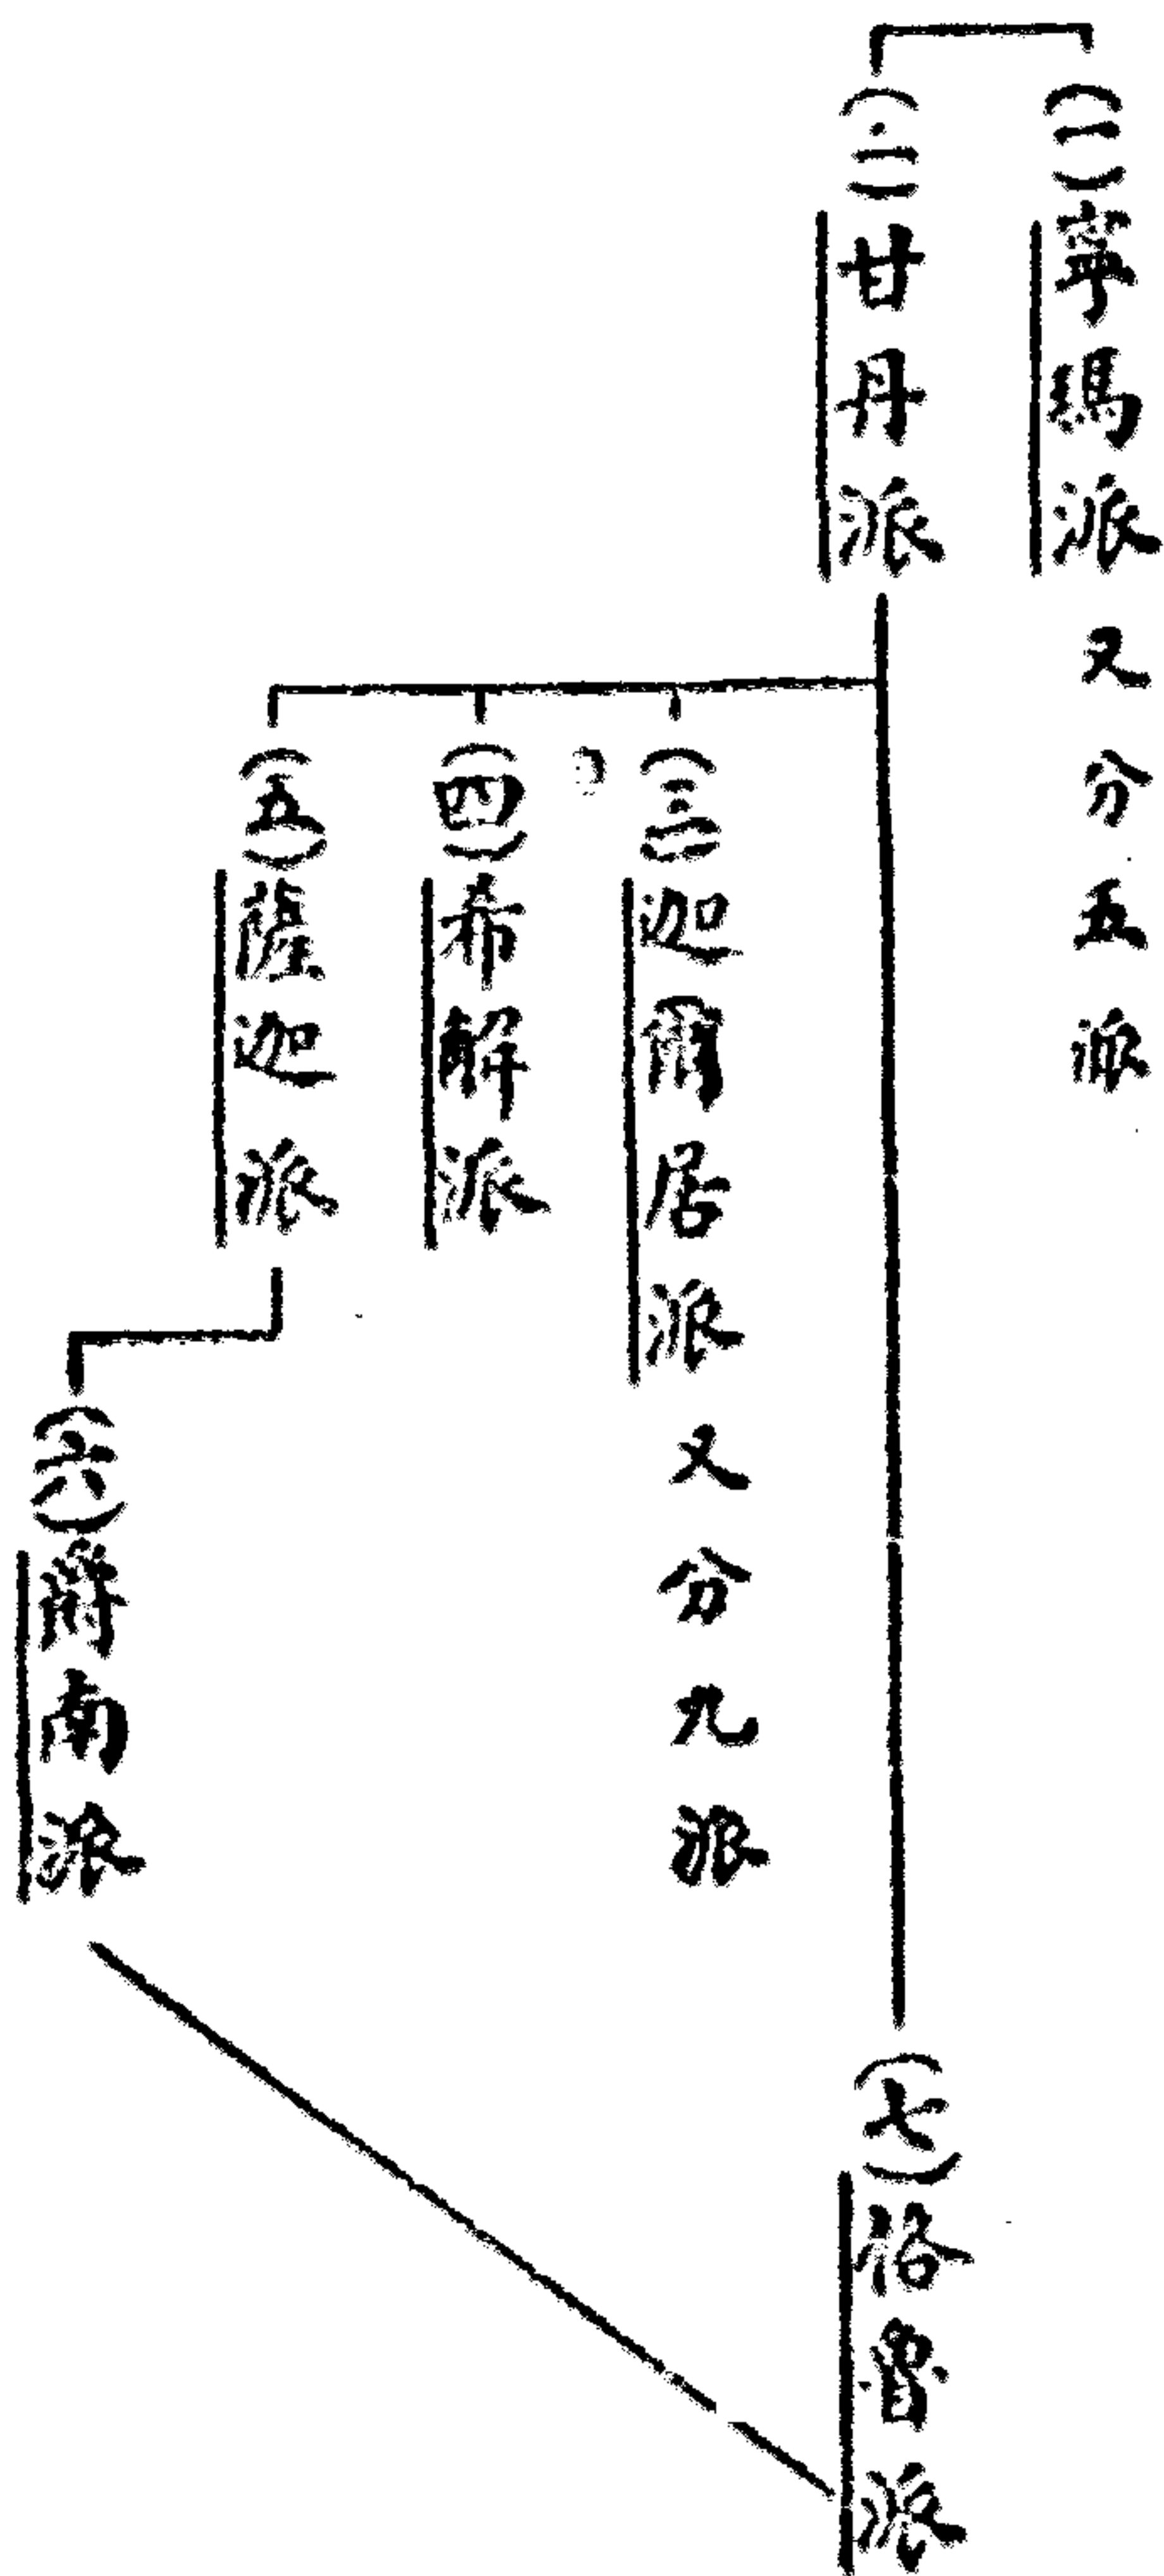 (一)寧瑪派又分五派
(二)甘丹派
(三)迦爾居派又分九派
(四)希解派
(五)薩迦派
(六)爵南派
(七)格魯派